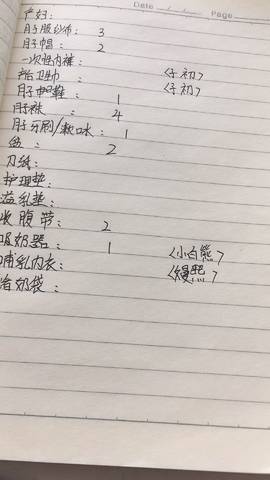 Date / / Page
产妇：
月子服纱布： 3
月子帽： 2
一次性内裤：
产后卫巾 〈子初〉
〈子初〉
月子鞋 1
月子袜 4
月子牙刷/漱口水： 1
盆： 2
刀纸：
护理垫：
溢乳垫：
收腹带： 2
吸奶器： 1 〈小白熊〉
哺乳内衣： 〈嫚熙〉
储奶袋：